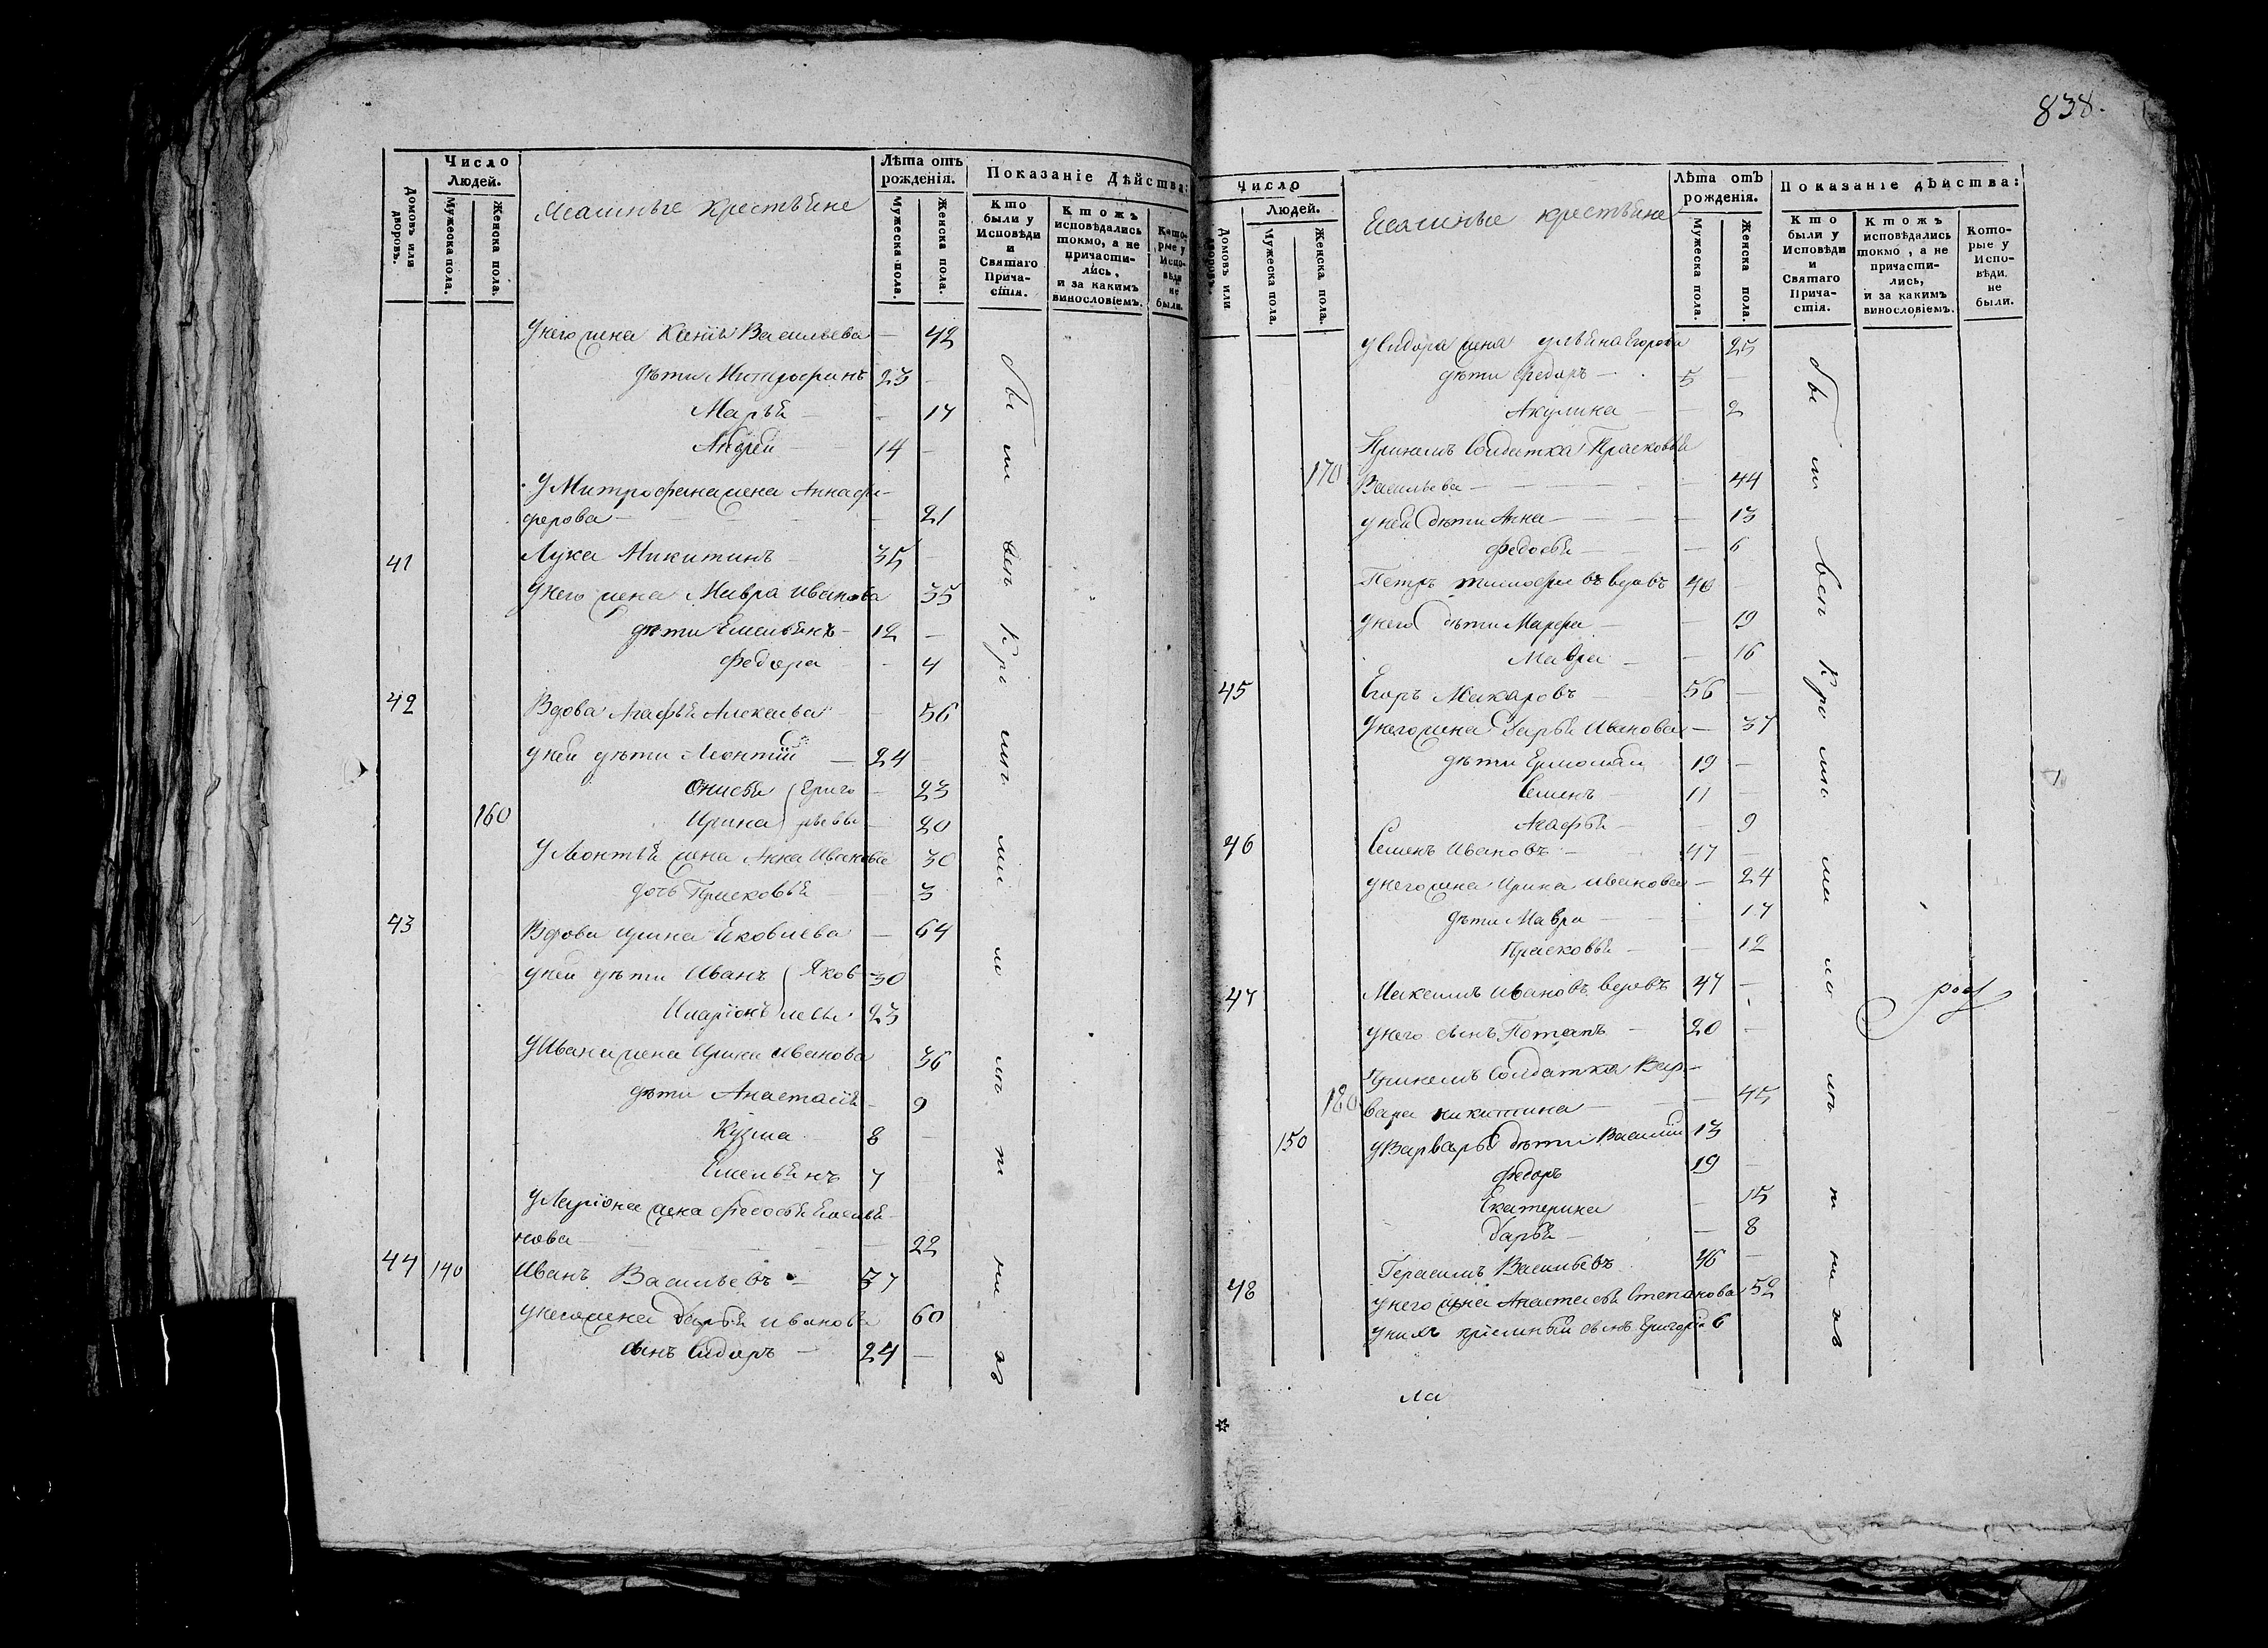 838.
Число
Людей.
Домовъ или дворовъ.
Мужеска пола.
Женска пола.
Ясашные крестьяне
Лѣта отъ рожденія.
Мужеска пола.
Женска пола.
Показаніе Дѣйства:
Кто были у Исповѣди и Святаго Причастія.
Ктожъ исповѣдались токмо, а не причастились, и за какимъ винословіемъ.
Которые у Исповѣди не были.
У него жена Ксенія Васильева — 42
дѣти Митрофанъ 23 —
Марья — — 17
Андрей — 14 —
У Митрофана жена Анна Фе-
дорова — — 21
41 Лука Никитинъ — 35 —
У него жена Мавра Иванова 35
дѣти Емельянъ — 12 —
Федора — — 4
42 Вдова Агафья Алексѣева — — 56
У ней дѣти Леонтій — 24 —
Онисья Григо — 23
160 Ирина рьевы — 20
У Леонтія жена Анна Иванова 30
дочь Прасковья — — 3
43 Вдова Ирина Яковлева — 64
У ней дѣти Иванъ Яков 30
Иларіонъ левы 23
У Ивана жена Ирина Иванова 36
дѣти Анастасія — 9
Кузма 8 —
Емельянъ 7
У Ларіона жена Федосья Емелья-
нова — — 22
44 140 Иванъ Васильевъ — 57
У него жена Дарья Иванова 60
сынъ Сидоръ — 24 —
бы ли вси кр
Число
Людей.
Домовъ или дворовъ.
Мужеска пола.
Женска пола.
Ясашные крестьяне
Лѣта отъ рожденія.
Мужеска пола.
Женска пола.
Показаніе дѣйства:
Кто были у Исповѣди и Святаго Причастія.
Ктожъ исповѣдались токмо, а не причастились, и за какимъ винословіемъ.
Которые у Исповѣди. не были.
У Сидора жена Ульяна Егорова 25
дѣти Федоръ — 5 —
Акулина — — 2
Пришлъ солдатка Прасковья
170 Васильева — — 44
у ней дѣти Анна — — 13
Федосья — — 6
Петръ Тимофеевъ вдовъ 40 —
У него дѣти Марфа — — 19
Мавра — — 16
45 Егоръ Макаровъ — 56 —
У него жена Дарья Иванова — 37
дѣти Ермолай 19 —
Семенъ — 11 —
Агафья — — 9
46 Семенъ Ивановъ — 47 —
у него жена Ирина Иванова — 24
дѣти Мавра — — 17
Прасковья — — 12
47 Максимъ Ивановъ вдовъ 47 —
у него сынъ Потапъ — 20 —
солдатка Вар-
180 вара Никитина — — 45
150 У Варвары дѣти Василій 13
Федоръ 19 —
Екатерина — 15
Дарья — — 8
Герасимъ Васильевъ 46 —
48 у него жена Анастасья Степанова 52
у нихъ пріемный сынъ Григорій 6
бы ли вси кро
ла